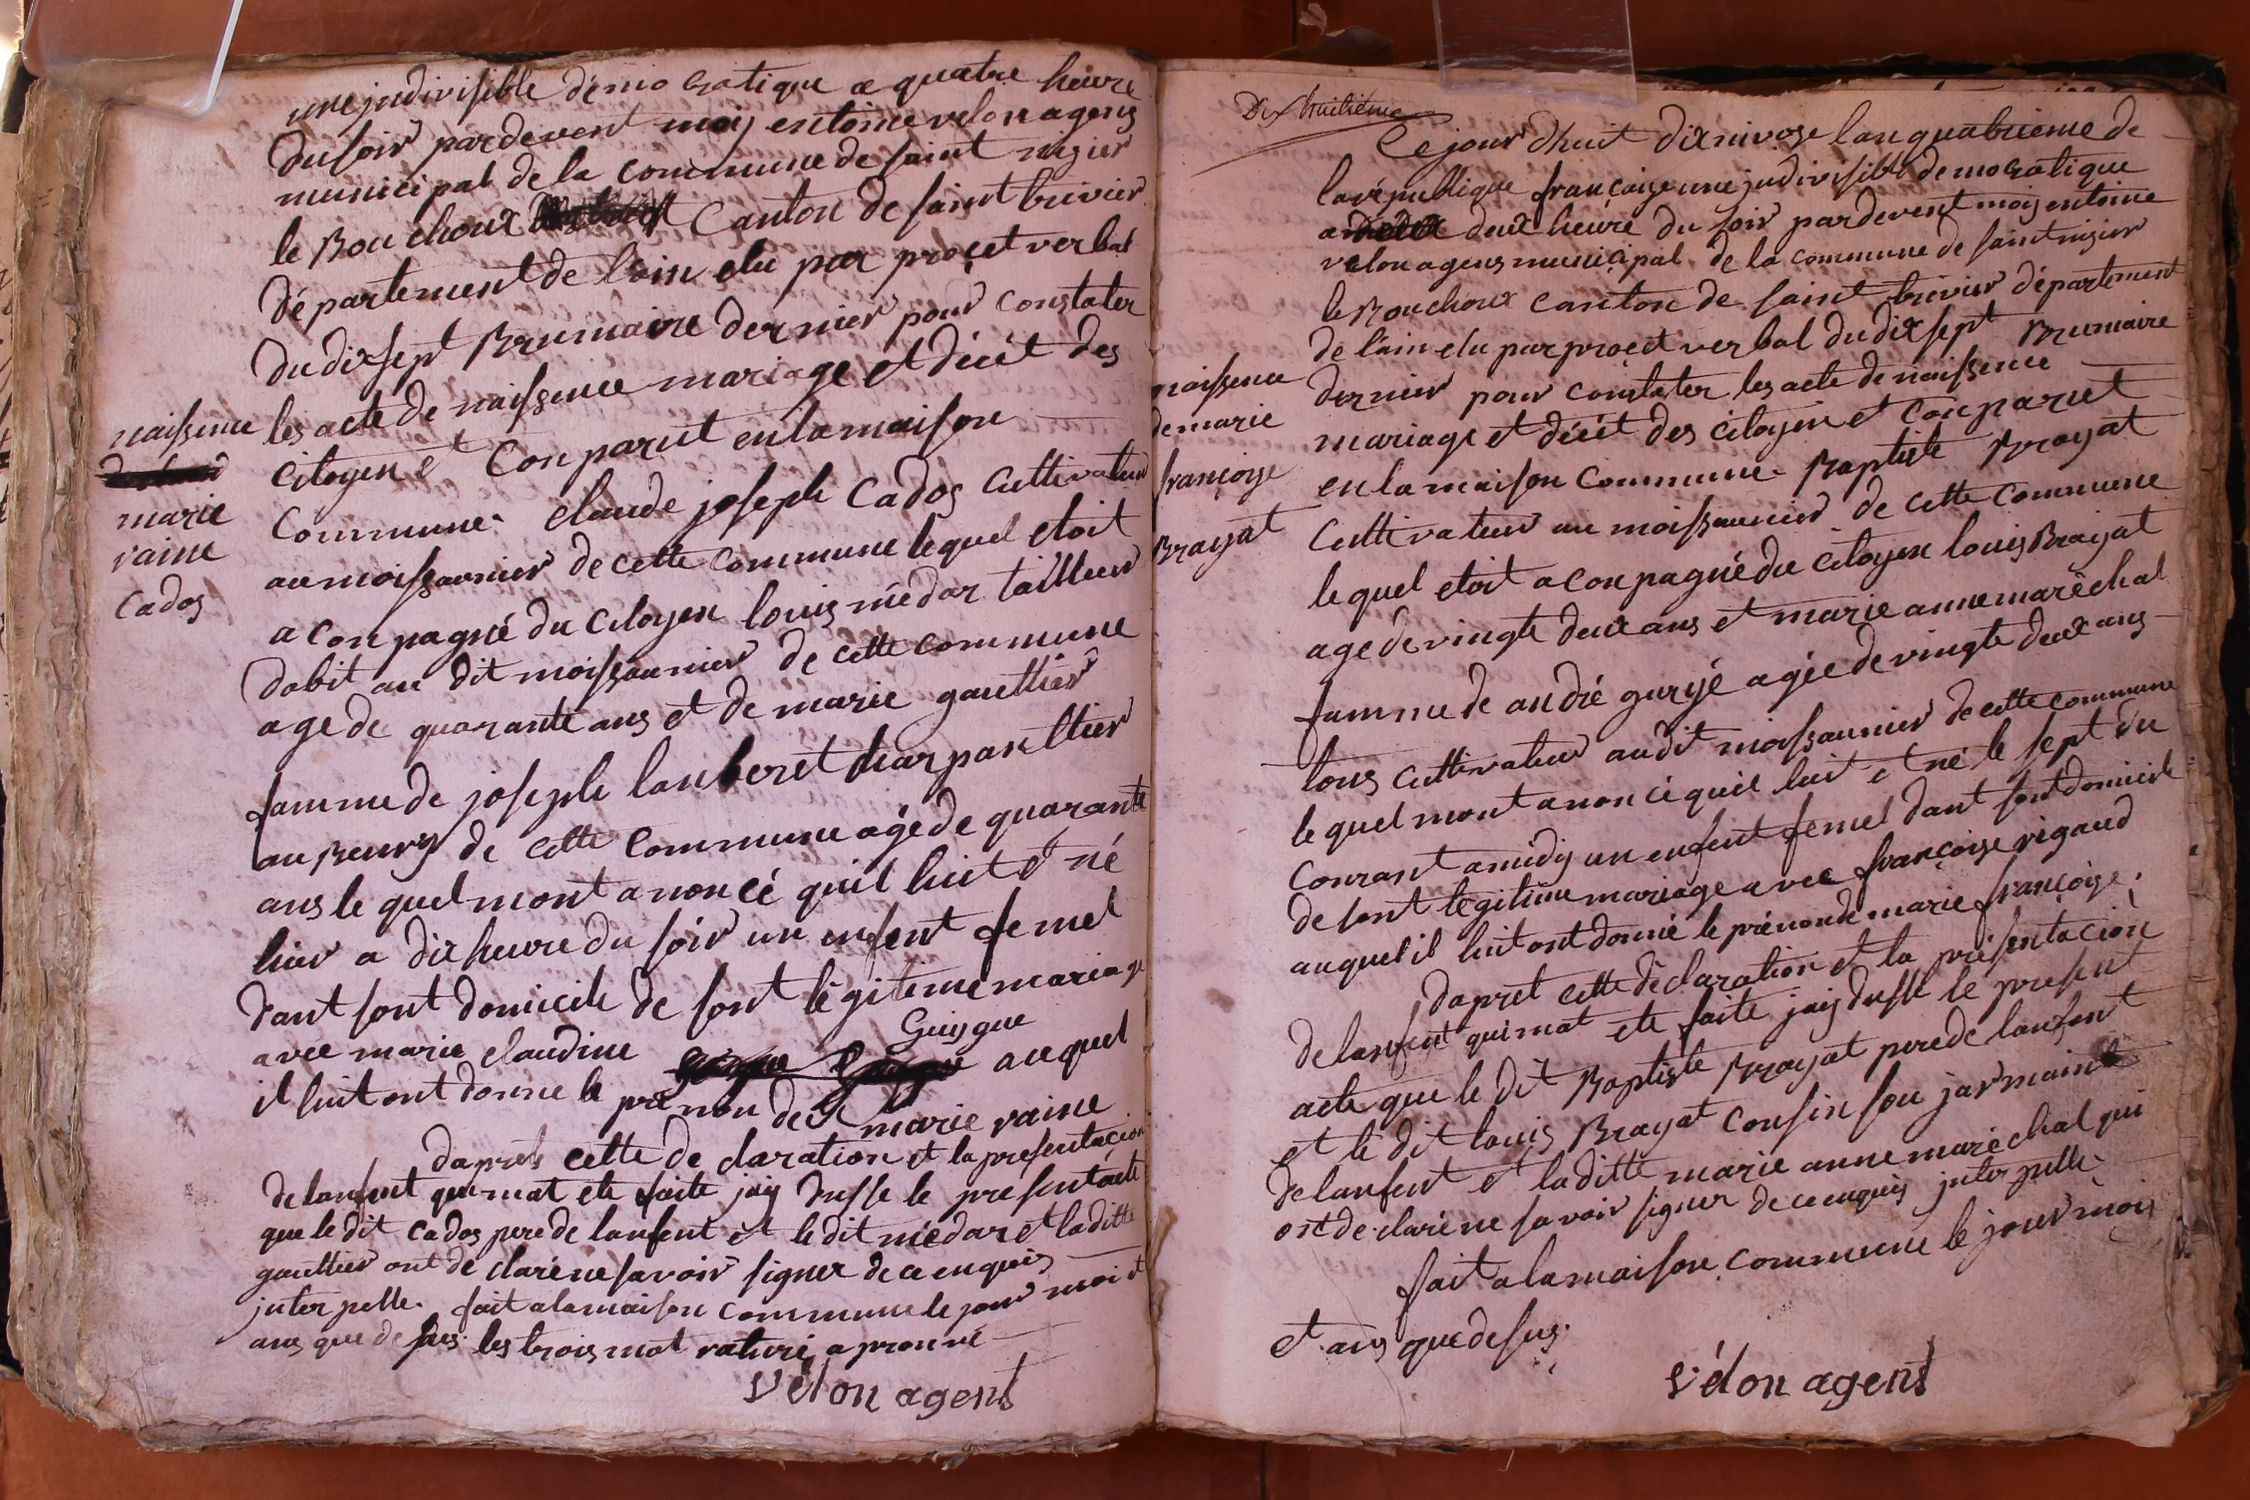 une jndivisible démocratique a quatre heure
du soir pardevent moij entoine velon agens
municipal de la commune de saint nisier
le Bouchoux Canton de saint trivier
département de l'ain elu par proçet verbal
du dix sept Brumaire dernier pour constater
les acte de naissence mariage et décét des
citoyen et Conparut en la maison
Commune. claude joseph Cados Cultivateur
au moissaunier de cette Commune lequel etoit
a conpagné du Citoyen louis médar tailleur
dabit au dit moissaunier de cette commune
age de quarante ans et de marie gauttier
famme de joseph lanberet harpanttier
au Bourg de cette Commune agé de quarante
ans le quel mont anoncé quil luit et né
hier a dix heure du soir un enfent femel
dant sont domicile de sont légiteme mariage
avec marie claudine Guisgue auquel
il luit ont donne le prénon de marie raine
daprés cette de claration et la presentacion
de lanfent quimat ete faite jaij dresse le présent acte
que le dit Cados pere de lanfent et le dit médar et laditte
gauttier ont de claré ne savoir signer de ce enquis
jnter pelle. fait a la maison commune le jour moi et
ans que de sus. les trois mot raturé aprouvé
vélon agent
naissence
marie
raine
Cados
Dix huitiéme
Cejour dhuit dix nivose lan quatrieme de
la républlique françaize une jndivisible democratique
a deux heure du soir pardevent moij entoine
velon agens municipal de la commune de saint nisier
le Bouchoux canton de saint trivier département
de lain elu par proçet verbal du dix sept Brumaire
dernier pour constater les acte de naissence
mariage et décét des citoyen et Conparut
en la maison Commune Baptiste Brayat
Cultivateur au moissaunier de cette Commune
le quel etoit a conpagné du Citoyen louis Brayat
agé de vingte deux ans et marie anne maréchal
famme de andré guryé agée de vingte deux ans
tous cultivateur audit moissaunier de cette commune
le quel mont anoncé quil luit et né le sept du
Courant a midij un enfent femel dant sont domicile
de sont légitime mariage avec françoise rigaud
auquel il luit ont donné le prénon de marie françoise.
dapret cette déclaration et la présentacion
de lanfent quimat ete faite jaij dresse le present
acte que le dit Baptiste Brayat pere de lanfent
et le dit louis Brayat Cousin sou jarmain
de lanfent et laditte marie anne maréchal qui
ont de claré ne savoir signer de ce enquis jnter pelle.
fait a la maison commune le jour mois
et ans que de sus.
vélon agent
naissence
de marie
françoise
Brayat